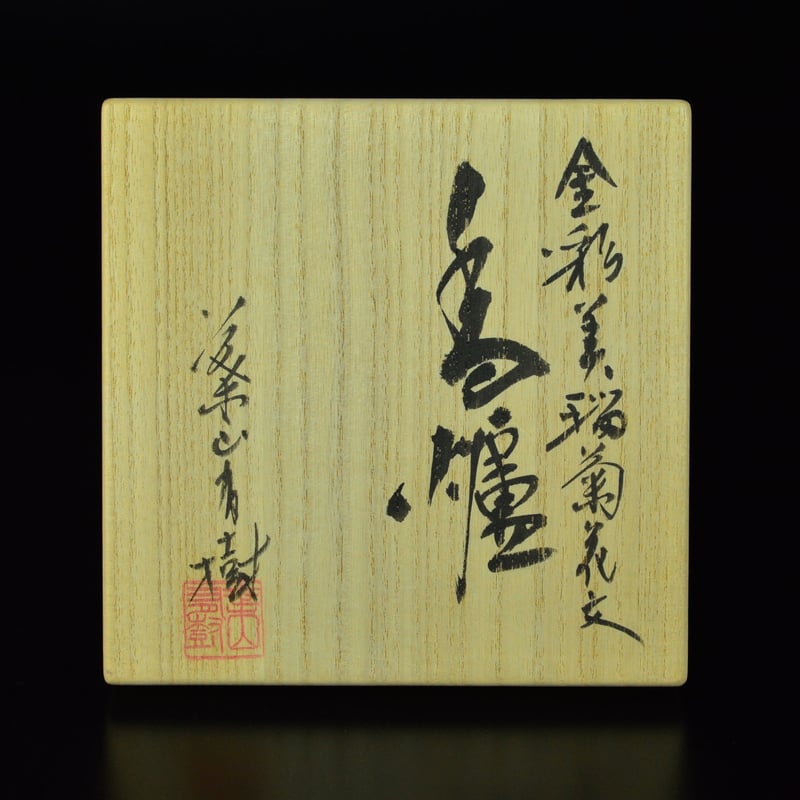 金彩美瑠菊花文
香爐
葉山有樹